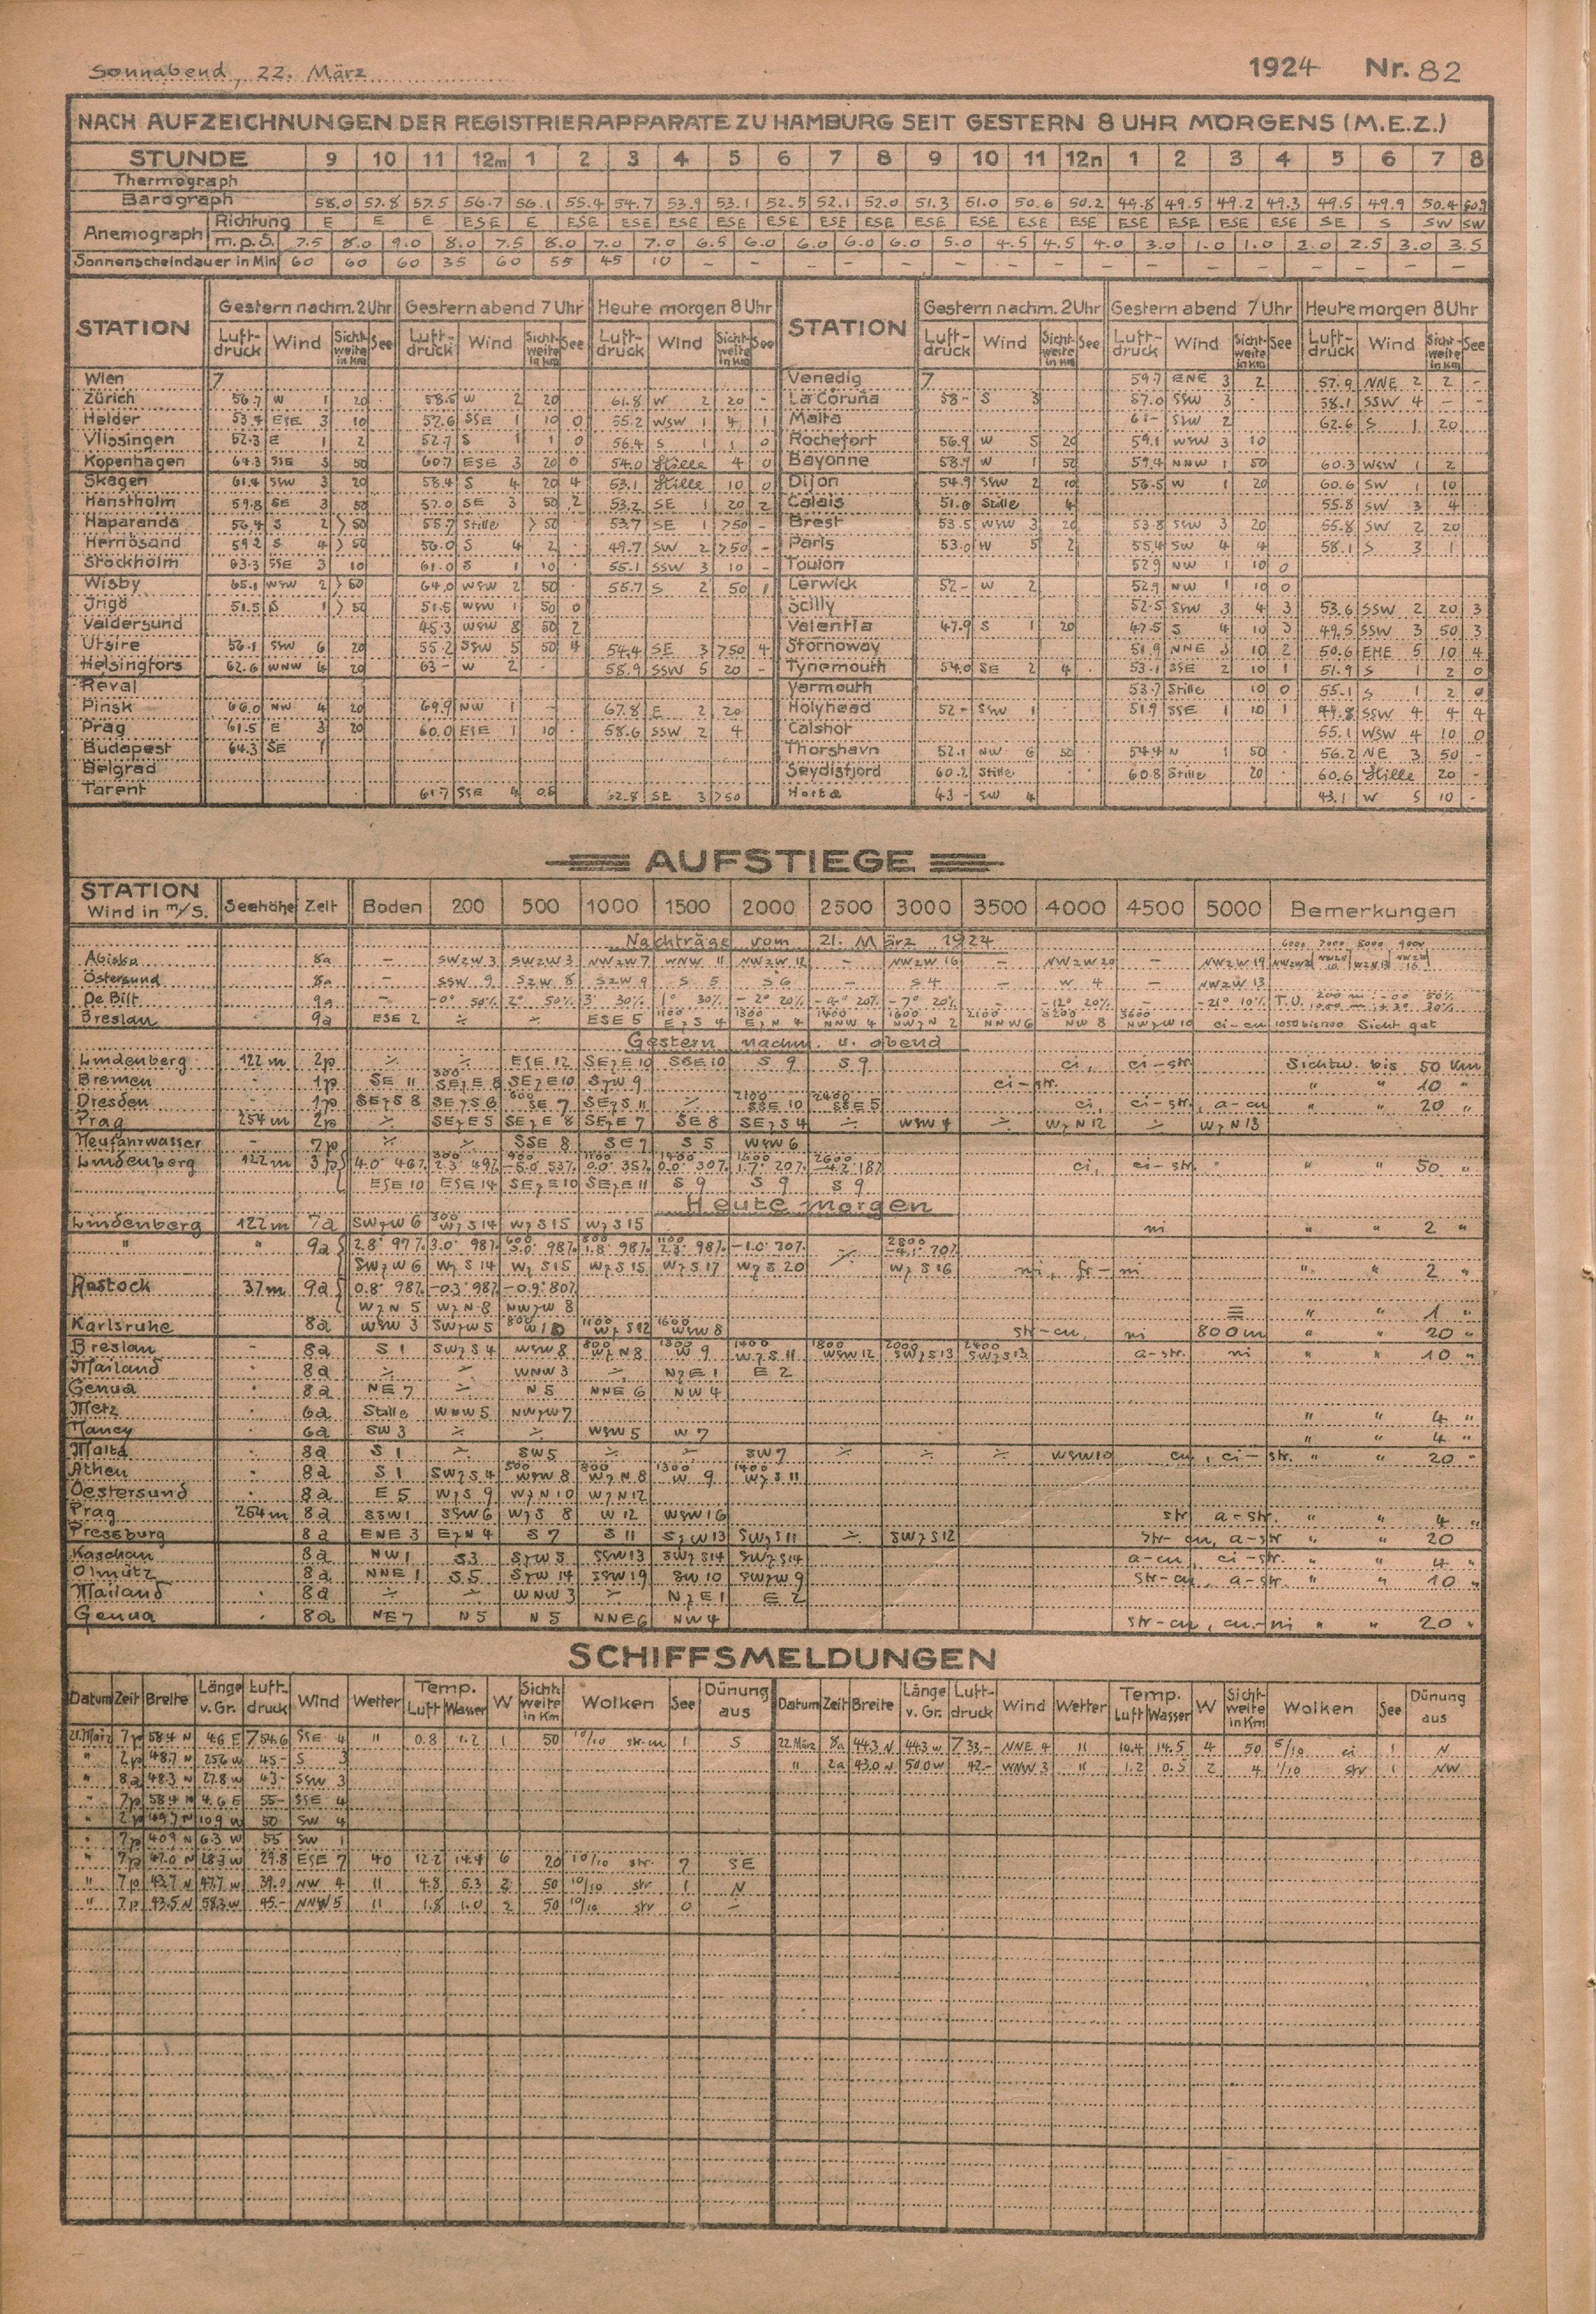 Sonnabend, 22. März 1924 Nr. 82
NACH AUFZEICHNUNGEN DER REGISTRIERAPPARATE ZU HAMBURG SEIT GESTERN 8 UHR MORGENS (M.E.Z.)
STUNDE 9 10 11 12m 1 2 3 4 5 6 7 8 9 10 11 12n 1 2 3 4 5 6 7 8
Thermograph
Barograph 58.0 57.8 57.5 56.7 56.1 55.4 54.7 53.9 53.1 52.5 52.1 52.0 51.3 51.0 50.6 50.2 49.8 49.5 49.2 49.3 49.5 49.9 50.4 50.9
Anemograph Richtung E E E ESE E ESE ESE ESE ESE ESE ESE ESE ESE ESE ESE ESE ESE ESE ESE ESE SE S SW SW
m.p.S. 7.5 8.0 9.0 8.0 7.5 8.0 7.0 7.0 6.5 6.0 6.0 6.0 6.0 5.0 4.5 4.5 4.0 3.0 1.0 1.0 2.0 2.5 3.0 3.5
Sonnenscheindauer in Min 60 60 60 35 60 55 45 10 – – – – – – – – – – – – – – – –
STATION Gestern nachm. 2 Uhr Gestern abend 7 Uhr Heute morgen 8 Uhr STATION Gestern nachm. 2 Uhr Gestern abend 7 Uhr Heute morgen 8 Uhr
Luft-druck Wind Sicht-weite in km See Luft-druck Wind Sicht-weite in km See Luft-druck Wind Sicht-weite in km See Luft-druck Wind Sicht-weite in km See Luft-druck Wind Sicht-weite in km See Luft-druck Wind Sicht-weite in km See
Wien 7 Venedig 7 59.7 ENE 3 2 57.9 NNE 2 2 –
Zürich 56.7 W 1 20 58.5 W 2 20 61.8 W 2 20 – La Coruña 58– S 3 57.0 SSW 3 58.1 SSW 4 – –
Helder 53.4 ESE 3 10 52.6 SSE 1 10 0 55.2 WSW 1 4 1 Malta 61– SW 2 62.6 S 1 20
Vlissingen 52.3 E 1 2 52.7 S 1 1 0 56.4 S 1 1 0 Rochefort 56.9 W 5 20 59.1 WSW 3 10
Kopenhagen 64.3 SSE 3 50 60.7 ESE 3 20 0 54.0 Stille 4 0 Bayonne 58.9 W 1 50 59.4 NNW 1 50 60.3 WSW 1 2
Skagen 61.4 SSW 3 20 58.4 S 4 20 4 53.1 Stille 10 0 Dijon 54.9 SSW 2 10 56.5 W 1 20 60.6 SW 1 10
Hanstholm 59.8 SE 3 50 57.0 SE 3 50 2 53.2 SE 1 20 2 Calais 51.6 Stille 4 55.8 SW 3 4
Haparanda 56.4 S 2 >50 55.7 Stille >50 53.7 SE 1 >50 – Brest 53.5 WSW 3 20 53.8 SSW 3 20 55.8 SW 2 20
Hernösand 59.2 S 4 >50 56.0 S 4 2 49.7 SW 2 >50 – Paris 53.0 W 5 2 55.4 SW 4 4 58.1 S 3 1
Stockholm 63.3 SSE 3 10 61.0 S 1 10 55.1 SSW 3 10 – Toulon 52.9 NW 1 10 0
Wisby 65.1 WSW 2 >50 64.0 WSW 2 50 55.7 S 2 50 1 Lerwick 52– W 2 52.9 NW 1 10 0
Jrigö 51.5 S 1 >50 51.5 WSW 1 50 0 Scilly 52.5 SSW 3 4 3 53.6 SSW 2 20 3
Valdersund 45.3 WSW 8 50 2 Valentia 47.9 S 1 20 47.5 S 4 10 3 49.5 SSW 3 50 3
Utsire 56.1 SSW 6 20 55.2 SSW 5 50 4 54.4 SE 3 >50 4 Stornoway 51.9 NNE 3 10 2 50.6 ENE 5 10 4
Helsingfors 62.6 WNW 4 20 63– W 2 – 58.9 SSW 5 20 – Tynemouth 54.0 SE 2 4 53.1 SSE 2 10 1 51.9 S 1 2 0
Reval Yarmouth 53.7 Stille 10 0 55.1 S 1 2 0
Pinsk 66.0 NW 4 20 69.9 NW 1 – 67.8 E 2 20 Holyhead 52– SSW 1 51.9 SSE 1 10 1 49.8 SSW 4 4 4
Prag 61.5 E 3 20 60.0 ESE 1 10 58.6 SSW 2 4 Calshot 55.1 WSW 4 10 0
Budapest 64.3 SE 1 Thorshavn 52.1 NW 6 50 54.4 N 1 50 56.2 NE 3 50 –
Belgrad Seydisfjord 60.2 Stille 60.8 Stille 20 60.6 Stille 20 –
Tarent 61.7 SSE 4 0.8 62.8 SE 3 >50 Horta 43– SW 4 43.1 W 5 10 –
AUFSTIEGE
STATION Wind in m/S. Seehöhe Zeit Boden 200 500 1000 1500 2000 2500 3000 3500 4000 4500 5000 Bemerkungen
Nachträge vom 21. März 1924 6000 7000 8000 9000
Abisko 8a – SWzW 3 SWzW 3 NWzW 7 WNW 11 NWzW 12 – NWzW 16 – NWzW 20 – NWzW 19
Östersund 8a – SSW 9 SzW 8 SzW 9 S 5 S 6 – S 4 – W 4 – NWzW 13
De Bilt 9a – -0° 50% 2° 50% 3° 30% 1° 30% –2° 20% –4° 20% –7° 20% – –12° 20% – –21° 10% T.U.
Breslau 9a ESE 2 ÷ ÷ ESE 5 1100 EzS 4 1300 EzN 4 1400 NNW 4 1600 NWzN 2 2100 NNW 6 3200 NW 8 3600 NWzW 10 ci-cu 1050 bis 1200 Sicht gut
Gestern nachm. u. abend
Lindenberg 122 m 2p ÷ ÷ ESE 12 SEzE 10 SSE 10 S 9 S 9 ci, ci-str. Sichtw. bis 50 Km
Bremen – 1p SE 11 300 SEzE 8 SEzE 10 SzW 9 ci-str. " " 10 "
Dresden – 1p SEzS 8 SEzS 6 600 SE 7 SEzS 11 ÷ 2100 SSE 10 2400 SSE 5 ci, ci-str, a-cu " " 20 "
Prag 254 m 2p ÷ SEzE 5 SEzE 8 SEzE 7 SE 8 SEzS 4 ÷ WSW 4 ÷ WzN 12 ÷ WzN 13
Neufahrwasser – 7p ÷ ÷ SSE 8 SE 7 S 5 WSW 6
Lindenberg 122 m 3p 4.0° 46% 300 2.3° 49% 900 –5.0° 53% 1100 0.0° 35% 1400 0.0° 30% 1600 1.7° 20% 2600 –4.2° 18% ci, ci-str. " " 50 "
ESE 10 ESE 14 SEzE 10 SEzE 11 S 9 S 9 S 9
Heute morgen
Lindenberg 122 m 7a SWzW 6 300 WzS 14 WzS 15 WzS 15 ni " " 2 "
" " 9a 2.8° 97% 3.0° 98% 600 3.0° 98% 800 1.8° 98% 1100 2.3° 98% –1.0° 70% ÷ 2800 –4.1° 70%
SWzW 6 WzS 14 WzS 15 WzS 15 WzS 17 WzS 20 WzS 16 ni, fr-ni " " 2 "
Rostock 37 m 9a 0.8° 98% –0.3° 98% –0.9° 80%
WzN 5 WzN 8 NWzW 8 ≡ " " 1 "
Karlsruhe 8a WSW 3 SWzW 5 800 W 10 1100 WzS 12 1600 WSW 8 str-cu, ni 800 m " " 20 "
Breslau – 8a S 1 SWzS 4 WSW 8 800 WzN 8 1300 W 9 1400 WzS 11 1800 WSW 12 2000 SWzS 13 2400 SWzS 13 a-str. ni " " 10 "
Mailand 8a ÷ ÷ WNW 3 ÷ NzE 1 E 2
Genua 8a NE 7 ÷ N 5 NNE 6 NW 4
Metz 6a Stille WNW 5 NWzW 7 " " 4 "
Nancy 6a SW 3 ÷ ÷ WSW 5 W 7 " " 4 "
Malta 8a S 1 ÷ SW 5 ÷ ÷ SW 7 ÷ ÷ ÷ WSW 10 cu, ci-str. " " 20 "
Athen 8a S 1 SWzS 4 500 WSW 8 800 WzN 8 1300 W 9 1400 WzS 11
Oestersund 8a E 5 WzS 9 WzN 10 WzN 12
Prag 254 m 8a SSW 1 SSW 6 WzS 8 W 12 WSW 16 str a-str. " " 4 "
Pressburg 8a ENE 3 EzN 4 S 7 S 11 SzW 13 SWzS 11 ÷ SWzS 12 str-cu, a-str. " " 20
Kaschau 8a NW 1 S 3 SzW 5 SSW 13 SWzS 14 SWzS 14 a-cu, ci-str. " " 4 "
Olmütz 8a NNE 1 S 5 SzW 14 SSW 19 SW 10 SWzW 9 str-cu, a-str. " " 10 "
Mailand 8a ÷ ÷ WNW 3 ÷ NzE 1 E 2
Genua 8a NE 7 N 5 N 5 NNE 6 NW 4 str-cu, cu-ni " " 20 "
SCHIFFSMELDUNGEN
Datum Zeit Breite Länge v. Gr. Luft-druck Wind Wetter Temp. Luft Wasser W Sicht-weite in Km Wolken See Dünung aus Datum Zeit Breite Länge v. Gr. Luft-druck Wind Wetter Temp. Luft Wasser W Sicht-weite in Km Wolken See Dünung aus
21. März 7p 58.4 N 4.6 E 754.6 SSE 4 " 0.8 1.2 1 50 10/10 str-cu 1 S 22. März 8a 44.3 N 44.3 W 733– NNE 4 " 10.4 14.5 4 50 5/10 ci 1 N
" 2p 48.7 N 25.6 W 45– S 3 " 2a 43.0 N 50.0 W 42– WNW 3 " 1.2 0.5 2 4 1/10 str 1 NW
" 8a 48.3 N 27.8 W 43– SSW 3
" 7p 58.4 N 4.6 E 55– SSE 4
" 2p 49.7 N 10.9 W 50 SW 4
" 7p 40.9 N 6.3 W 55 SW 1
" 7p 47.0 N 28.3 W 29.8 ESE 7 40 12.2 14.4 6 20 10/10 str. 7 SE
" 7p 43.7 N 47.7 W 39.0 NW 4 " 4.8 5.3 2 50 10/10 str 1 N
" 7p 43.5 N 58.3 W 45– NNW 5 " 1.8 1.0 2 50 10/10 str 0 –